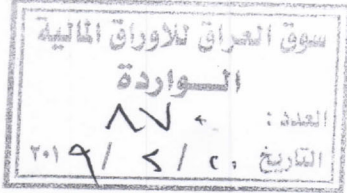 سوق العراق للاوراق المالية
الـــواردة
العدد : ٨٧٠
التاريخ ٢٠ / ٢ / ٢٠١٩